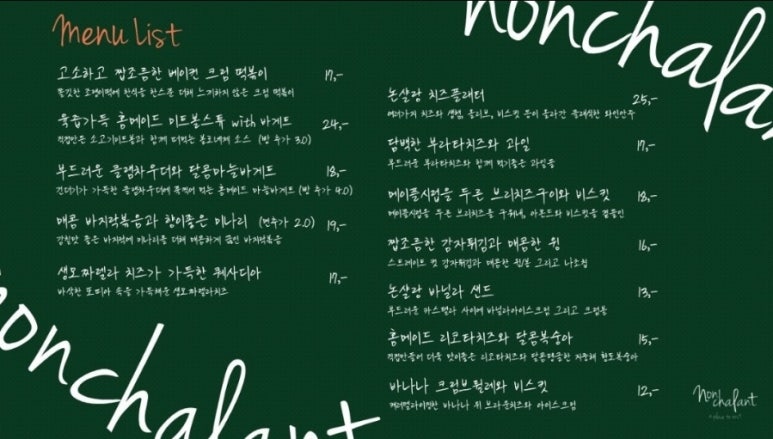 Menu List
고소하고 짭조름한 베이컨 크림 떡볶이 17,-
쫄깃한 조랭이떡에 한식을 한스푼 더해 느끼하지 않은 크림 떡볶이
육즙가득 홈메이드 미트볼스튜 with 바게트 24,-
직접만든 소고기미트볼과 함께 떠먹는 볼로네제 소스 (빵 추가 3.0)
부드러운 클램차우더와 달콤마늘바게트 18,-
건더기가 가득한 클램차우더에 푹찍어 먹는 홈메이드 마늘바게트 (빵 추가 4.0)
매콤 바지락볶음과 향이좋은 미나리 (면추가 2.0) 19,-
감칠맛 좋은 바지락에 미나리를 더해 매콤하게 볶은 바지락볶음
생모짜렐라 치즈가 가득한 퀘사디아 17,-
바삭한 또띠아 속을 가득채운 생모짜렐라치즈
nonchalant
nonchalant
논샬랑 치즈플래터 25,-
여러가지 치즈와 햄, 올리브, 비스킷 등이 올라간 클래식한 와인안주
담백한 부라타치즈와 과일 17,-
부드러운 부라타치즈와 함께 먹기좋은 과일들
메이플시럽을 두른 브리치즈구이와 비스킷 18,-
메이플시럽을 두른 브리치즈를 구워내, 아몬드와 비스킷을 곁들인
짭조름한 감자튀김과 매콤한 윙 16,-
스트레이트 컷 감자튀김과 매콤한 윙/봉 그리고 나쵸칩
논샬랑 바닐라 샌드 13,-
부드러운 카스텔라 사이에 바닐라아이스크림 그리고 크럼블
홈메이드 리코타치즈와 달콤복숭아 15,-
직접만들어 더욱 맛이좋은 리코타치즈와 달콤탱글한 황도복숭아
바나나 크림브륄레와 비스킷 12,-
캐러멜라이징한 바나나 위 브라운치즈와 아이스크림
nonchalant